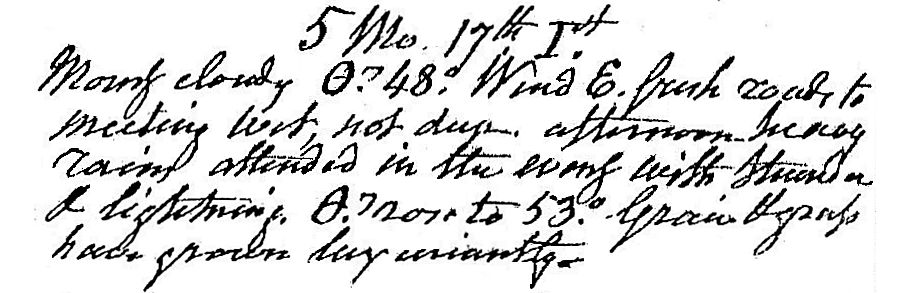 5 Mo. 17th I.st
Morng cloudy θ? 48°. Wind E. fresh roads to
meeting wet, not deep. afternoon heavy
rains attended in the eveng with thunder
& lightning. θ? rose to 53.° Grain & grass
have grown luxuriantly.